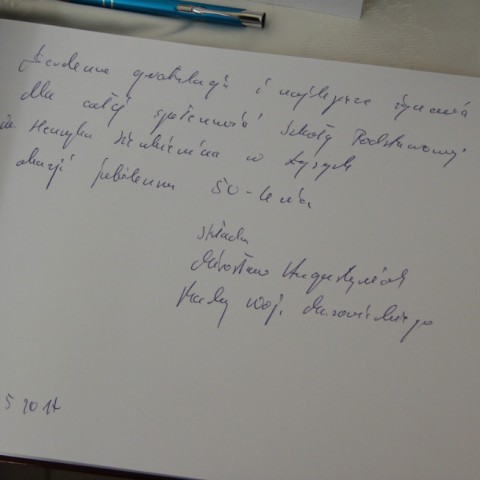 Serdeczne gratulacje i najlepsze życzenia
dla całej społeczności Szkoły Podstawowej
im. Henryka Sienkiewicza w Łysych
okazji jubileuszu 50-lecia
składa
Mirosław Augustyniak
Radny Woj. Mazowieckiego
5 2017